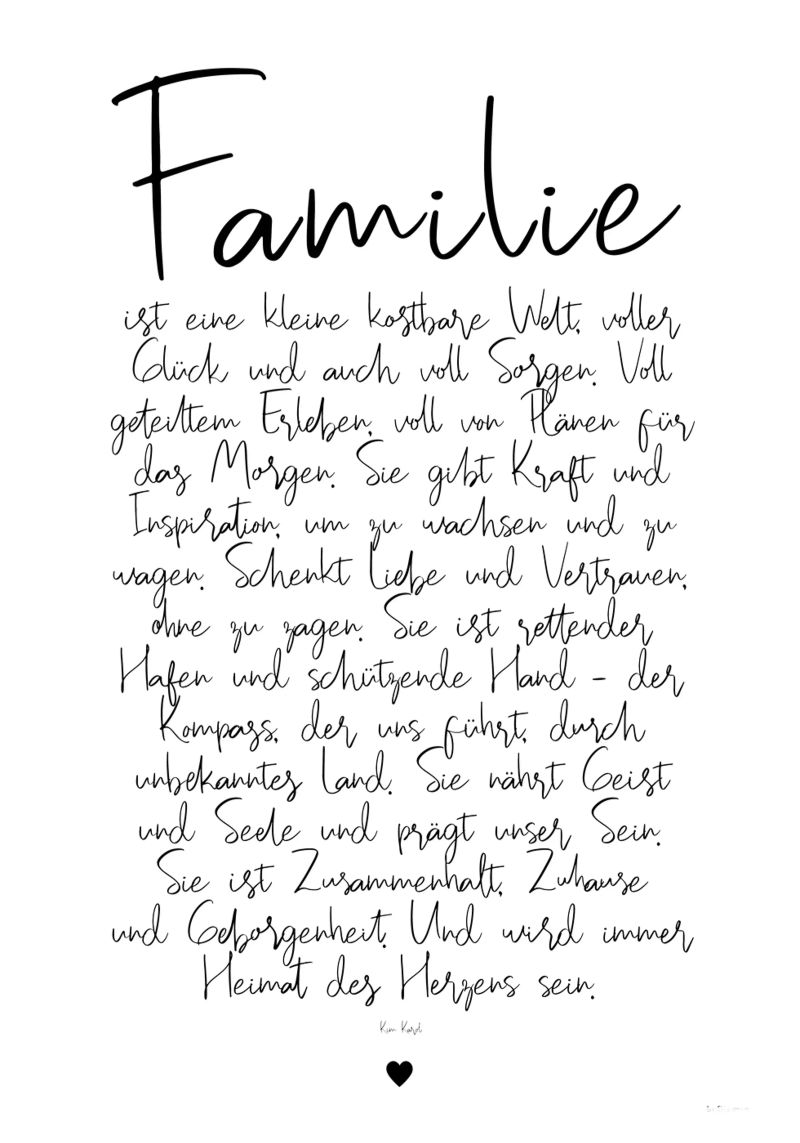 Familie
ist eine kleine kostbare Welt, voller
Glück und auch voll Sorgen. Voll
geteiltem Erleben, voll von Plänen für
das Morgen. Sie gibt Kraft und
Inspiration, um zu wachsen und zu
wagen. Schenkt Liebe und Vertrauen,
ohne zu zagen. Sie ist rettender
Hafen und schützende Hand - der
Kompass, der uns führt, durch
unbekanntes Land. Sie nährt Geist
und Seele und prägt unser Sein.
Sie ist Zusammenhalt, Zuhause
und Geborgenheit. Und wird immer
Heimat des Herzens sein.
Kim